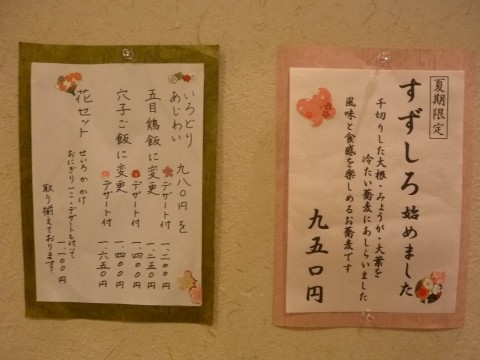 夏期限定
すずしろ 始めました
千切りした大根・みょうが・大葉を
冷たい蕎麦にあしらいました
風味と食感を楽しめるお蕎麦です
九五〇円
いろどり
あじわい
九八〇円を
デザート付 一、二〇〇円
五目鶏飯に変更 一、二五〇円
デザート付 一、四〇〇円
穴子ご飯に変更 一、四〇〇円
デザート付 一、六五〇円
花セット せいろ か かけ
おにぎり一コ・デザートも付いて 一、一〇〇円
取り揃えております。